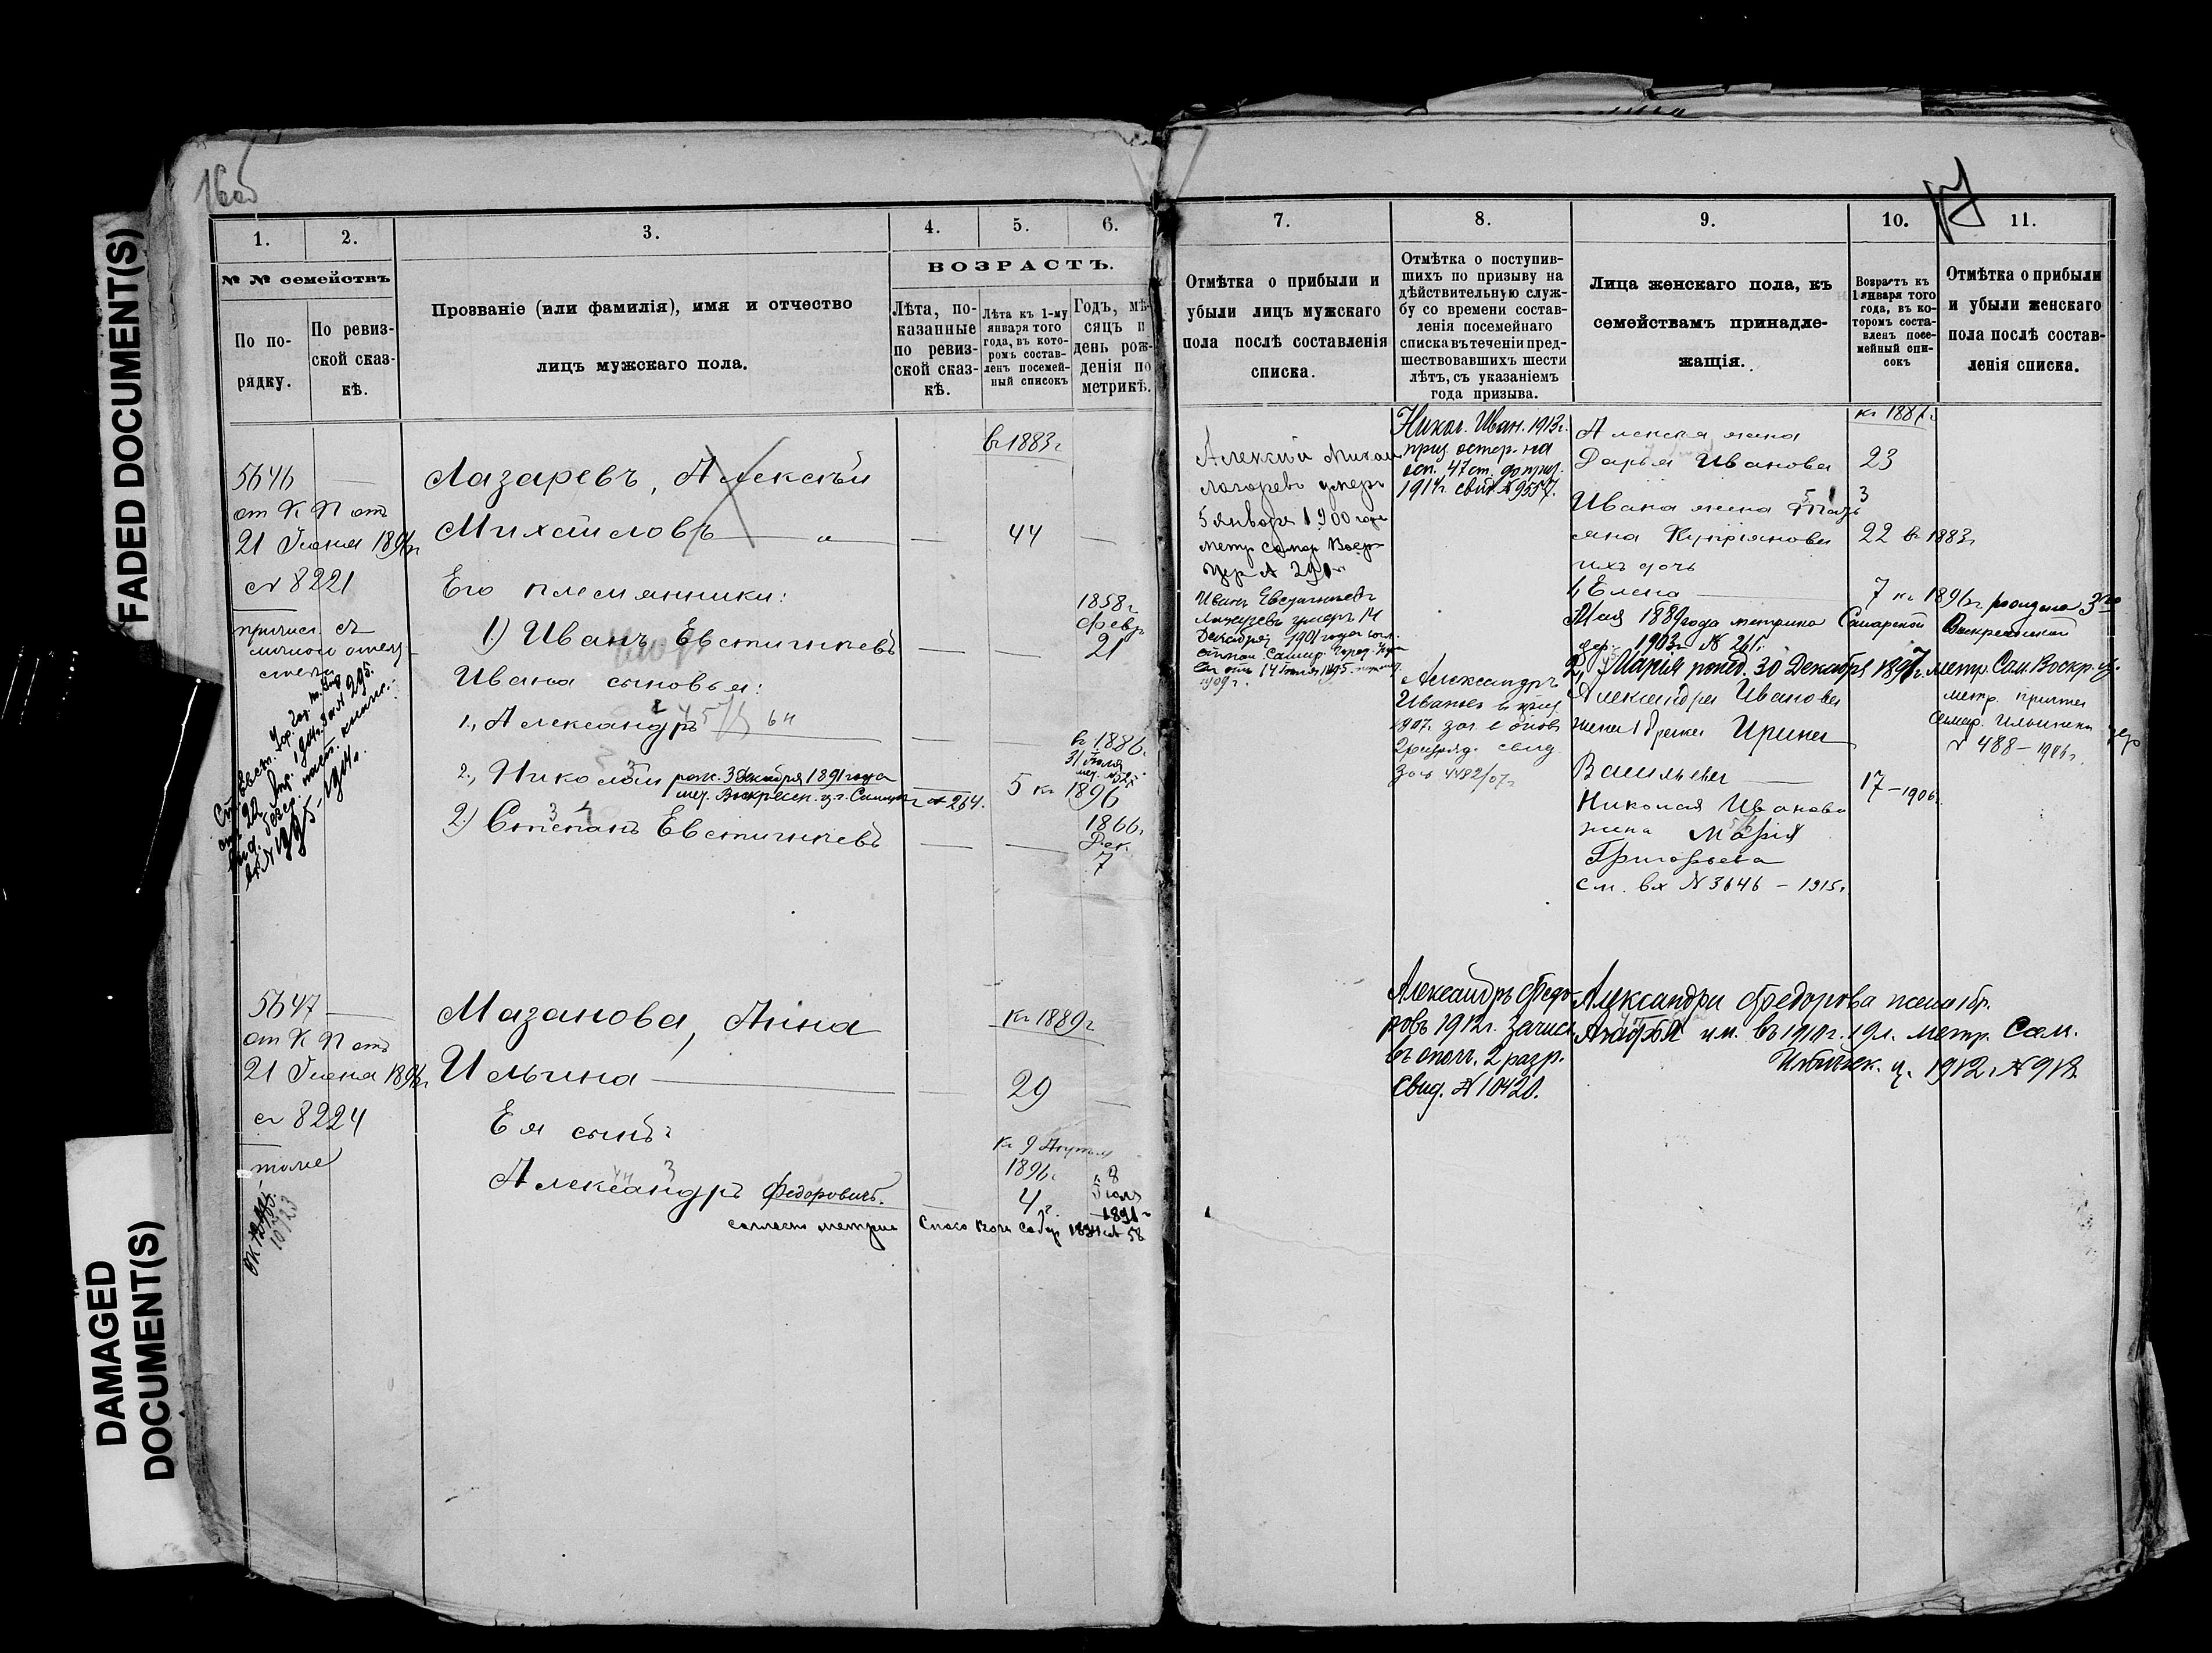 FADED DOCUMENT(S)
DAMAGED
DOCUMENT(S)
16об
1.
2.
3.
4.
5.
6.
№ № семействъ
По по-
рядку.
По ревиз-
ской сказ-
кѣ.
Прозваніе (или фамилія), имя и отчество
лицъ мужскаго пола.
ВОЗРАСТЪ.
Лѣта, по-
казанные
по ревиз-
ской сказ-
кѣ.
Лѣта къ 1-му
января того
года, въ кото-
ромъ состав-
ленъ посемей-
ный списокъ
Годъ, мѣ-
сяцъ и
день рож-
денія по
метрикѣ.
5646
от К П отъ
21 Іюня 1896г
№ 8221
причис. съ
въ 1883г
Лазаревъ, Алексѣй
Михайловъ — 44 —
Его племянники:
1.) Иванъ Евстигнѣевъ
1858г
февр
21
Ивана сыновья:
1., Александръ
въ 1886г
31 Іюля
2., Николай рож. 3 Декабря 1891 года
мет. Воскресен. ц. г. Самары № 264.
5 къ 1896
2.) Степанъ Евстигнѣевъ
1866г
Дек.
7
5647
от К П отъ
21 Іюня 1896г
№ 8224
тоже
10/23
Мазанова, Анна
Ильина
къ 1889г
29
Ея сынъ:
Александръ Федоровичъ.
1896г
4г.
8
Іюля
1891г
согласно метрики Спасо Возн Собор 1891 № 58
17
7.
8.
9.
10.
11.
Отмѣтка о прибыли и
убыли лицъ мужскаго
пола послѣ составленія
списка.
Отмѣтка о поступив-
шихъ по призыву на
дѣйствительную служ-
бу со времени состав-
ленія посемейнаго
списка въ теченіи пред-
шествовавшихъ шести
лѣтъ, съ указаніемъ
года призыва.
Лица женскаго пола, къ
семействамъ принадле-
жащія.
Возрастъ къ
1 января того
года, въ ко-
торомъ соста-
вленъ посе-
мейный спи-
сокъ
Отмѣтка о прибыли
и убыли женскаго
пола послѣ состав-
ленія списка.
Алексѣй Михай
Лазаревъ умеръ
5 января 1900 года
метр Самар Воскр
Цер № 290
Иванъ Евстигнѣевъ
Лазаревъ умеръ 14
Декабря 1901 года
1909 г.
Никол. Иван. 1913г.
1914г. свид. № 9557.
Александръ
Ивановъ въ приз.
1907г. зач. въ ополч
2 разряд. свид
за № 4482/07г
къ 1887г.
Алексѣя жена
Дарья Иванова 23
Ивана жена Тать
яна Купріянова 22 въ 1883г
ихъ дочь
1, Елена 7 къ 1896г родилась 3го
Мая 1889 года метрика Самарской Воскресенской
цер. 1903г № 261.
2, Марія рожд. 30 Декабря 1897г. метр. Сам. Воскр. ц.
Александра Иванова
жена 1 брака Ирина
Васильева 17 — 1906г.
Самар. Ильинск цер
№ 488 — 1906г.
Николая Иванова
жена Марія
Григорьева
см. вх № 3646 — 1915г.
Александръ Федо-
ровъ 1912г. зачисл.
въ ополч. 2 разр.
Свид. № 10420.
Александра Федорова жена 1 бр.
19 л. метр. Сам.
Ильинск. ц. 1912г. № 918.